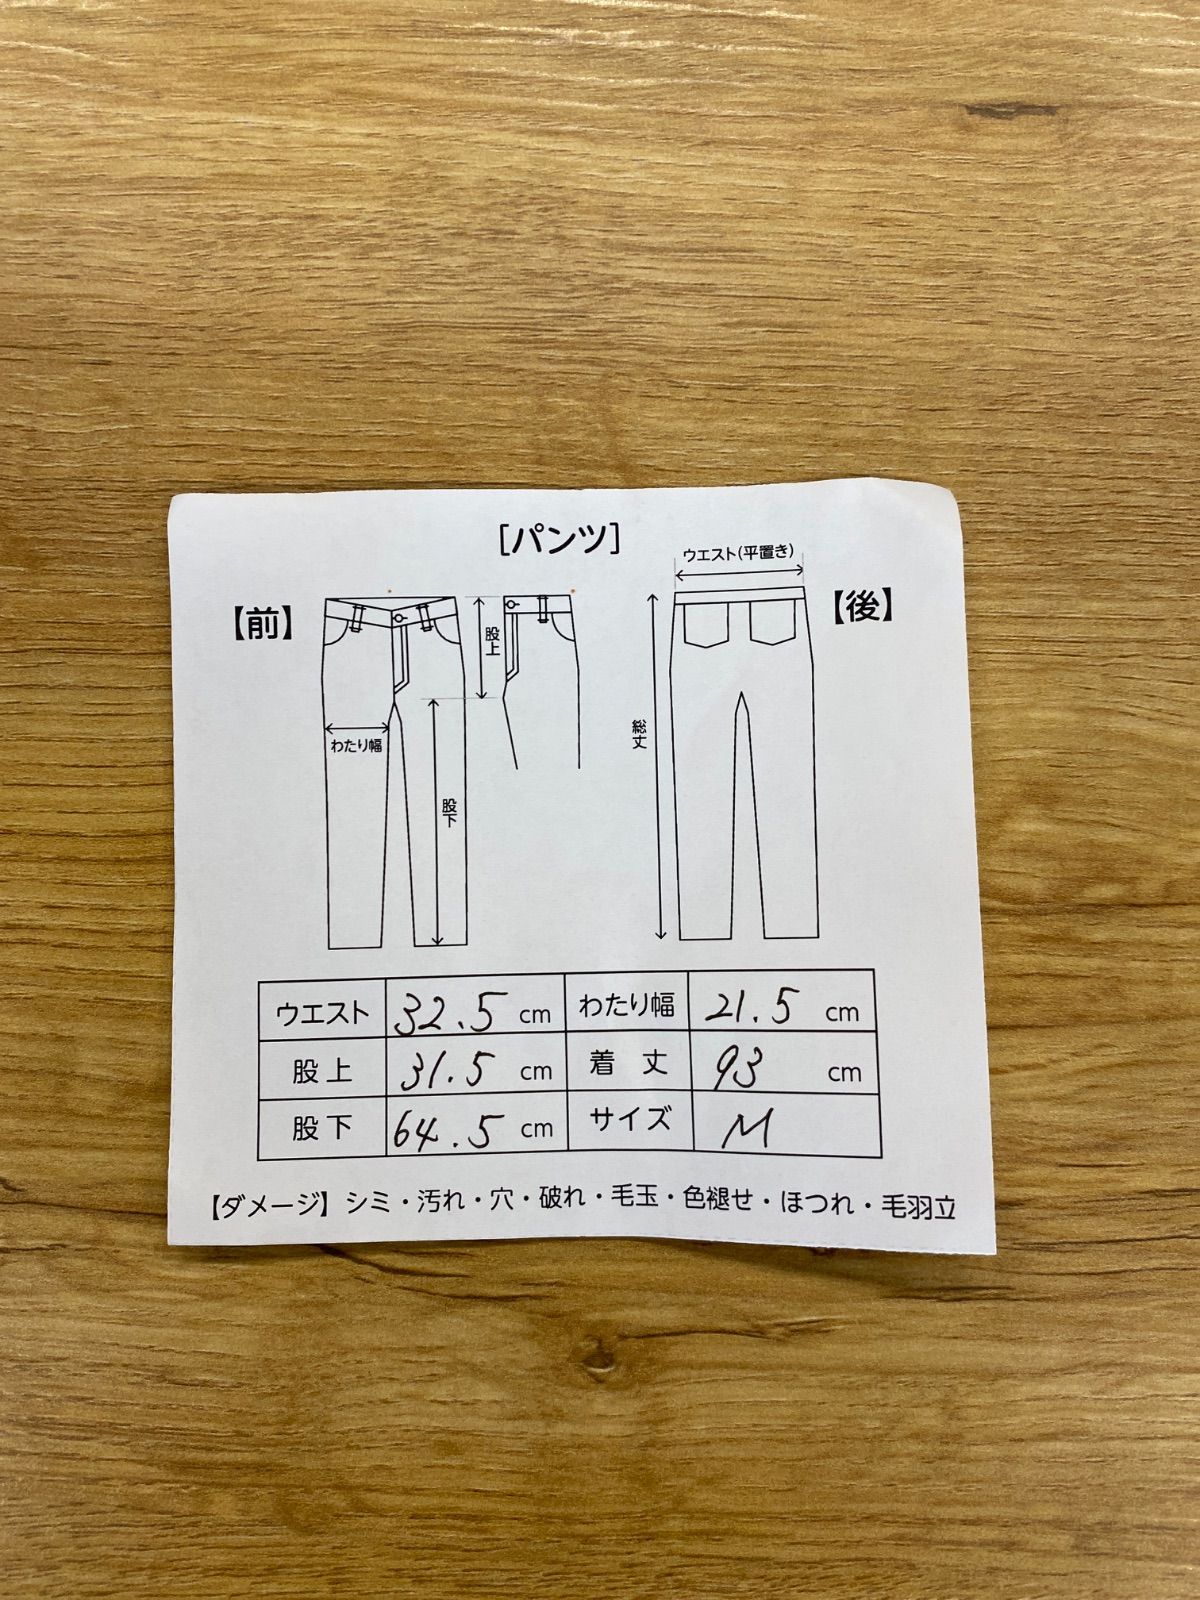 [パンツ]
ウエスト(平置き)
【前】
【後】
股上
わたり幅
股下
総丈
ウエスト 32.5 cm わたり幅 21.5 cm
股上 31.5 cm 着丈 93 cm
股下 64.5 cm サイズ M
【ダメージ】シミ・汚れ・穴・破れ・毛玉・色褪せ・ほつれ・毛羽立